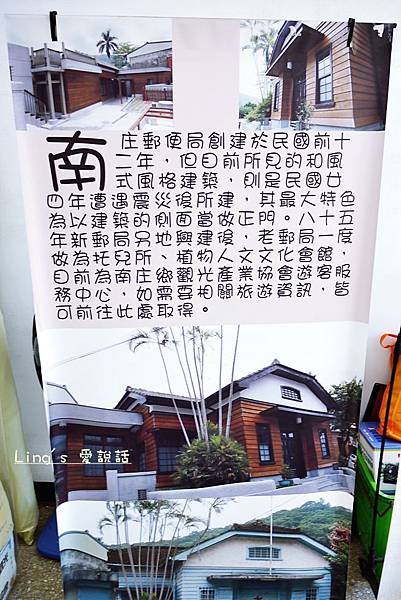 南庄郵便局創建於民國前十
二年，但目前所見的和風
式風格建築，則是民國廿
四年遭遇震災後所建，其最大特色
為以建築的側面當做正門。八十五
年新郵局另地興建後，老郵局一度
做為托兒所、植物人文文化會館，
目前為南庄鄉觀光產業協會遊客服
務中心，如需要相關旅遊資訊，皆
可前往此處取得。
Ling's 愛說話